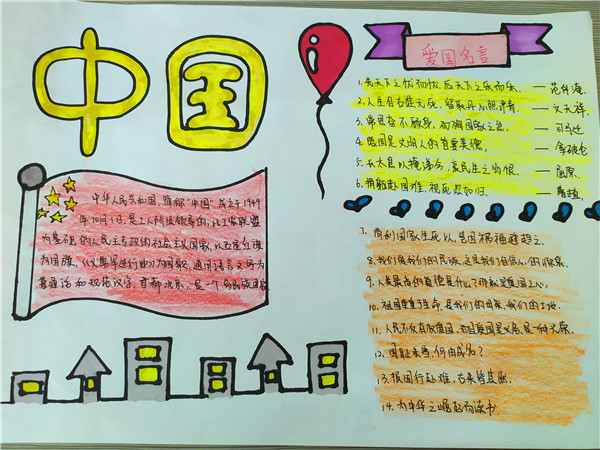 中国
中华人民共和国,简称"中国",成立于1949
年10月1日,是工人阶级领导的,以工农联盟
为基础的人民民主专政的社会主义国家,以五星红旗
为国旗,《义勇军进行曲》为国歌,通用语言文字为
普通话和规范汉字,首都北京,是一个多民族国家
爱国名言
1.先天下之忧而忧,后天下之乐而乐. — 范仲淹
2.人生自古谁无死,留取丹心照汗青. — 文天祥
3.常思奋不顾身,而殉国家之急. — 司马迁
4.爱国是文明人的首要美德. — 拿破仑
5.长太息以掩涕兮,哀民生之多艰. — 屈原
6.捐躯赴国难,视死忽如归. — 曹植
7.苟利国家生死以,岂因祸福避趋之.
8.我们爱我们的民族,这是我们自信心的源泉.
9.人类最高的道德是什么?那就是爱国之心.
10.祖国重于生命,是我们的母亲,我们的土地.
11.人民不仅有权爱国,而且爱国是义务,是一种光荣.
12.国耻未雪,何由成名?
13.报国行赴难,古来皆共然.
14.为中华之崛起而读书